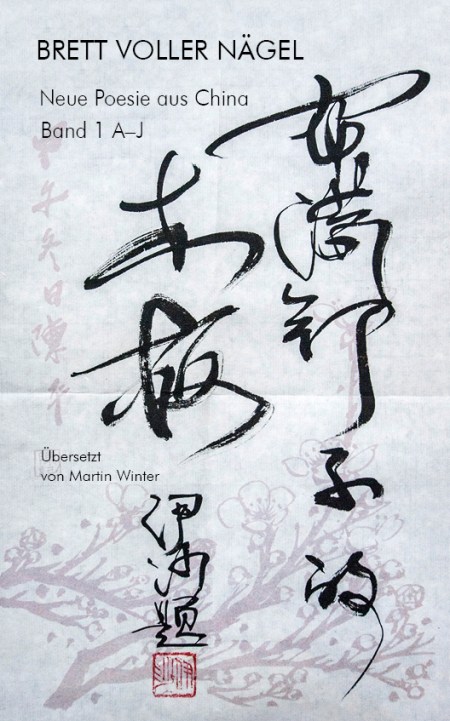 BRETT VOLLER NÄGEL
Neue Poesie aus China
Band 1 A–J
布满钉子的
木板
Übersetzt
von Martin Winter
伊沙题